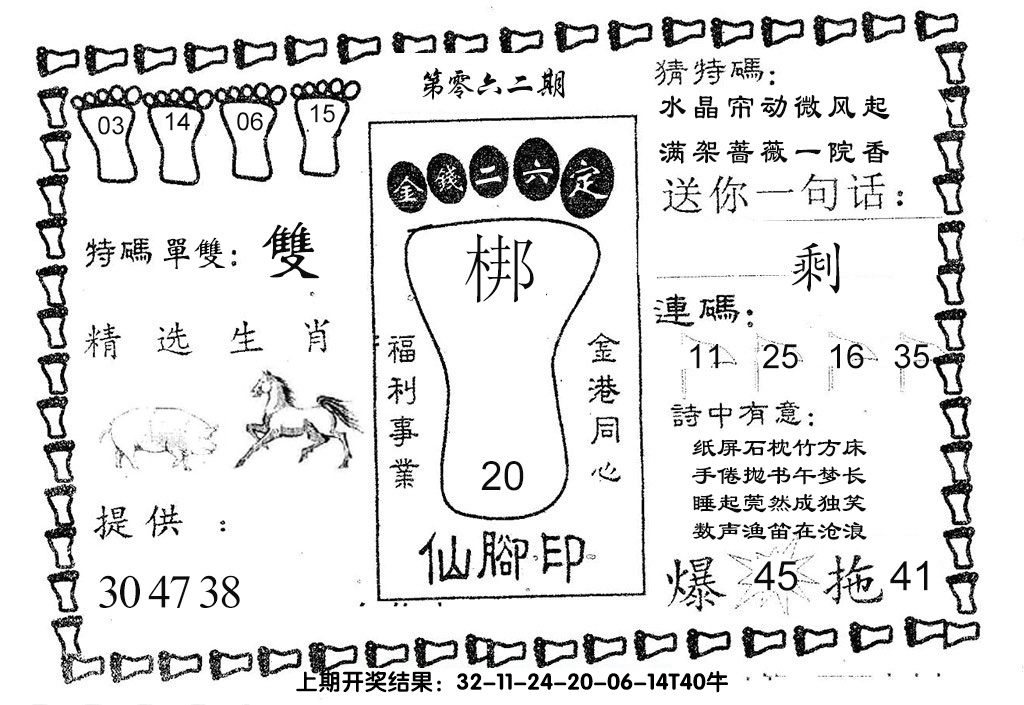 第零六二期
03 14 06 15
特碼單雙：雙
精选生肖
提供：
30 47 38
金錢二六定
梆
福利事業
金港同心
20
仙腳印
猜特碼：
水晶帘动微风起
满架蔷薇一院香
送你一句话：
剩
連碼：
11 25 16 35
詩中有意：
纸屏石枕竹方床
手倦抛书午梦长
睡起莞然成独笑
数声渔笛在沧浪
爆 45 拖 41
上期开奖结果：32-11-24-20-06-14T40牛